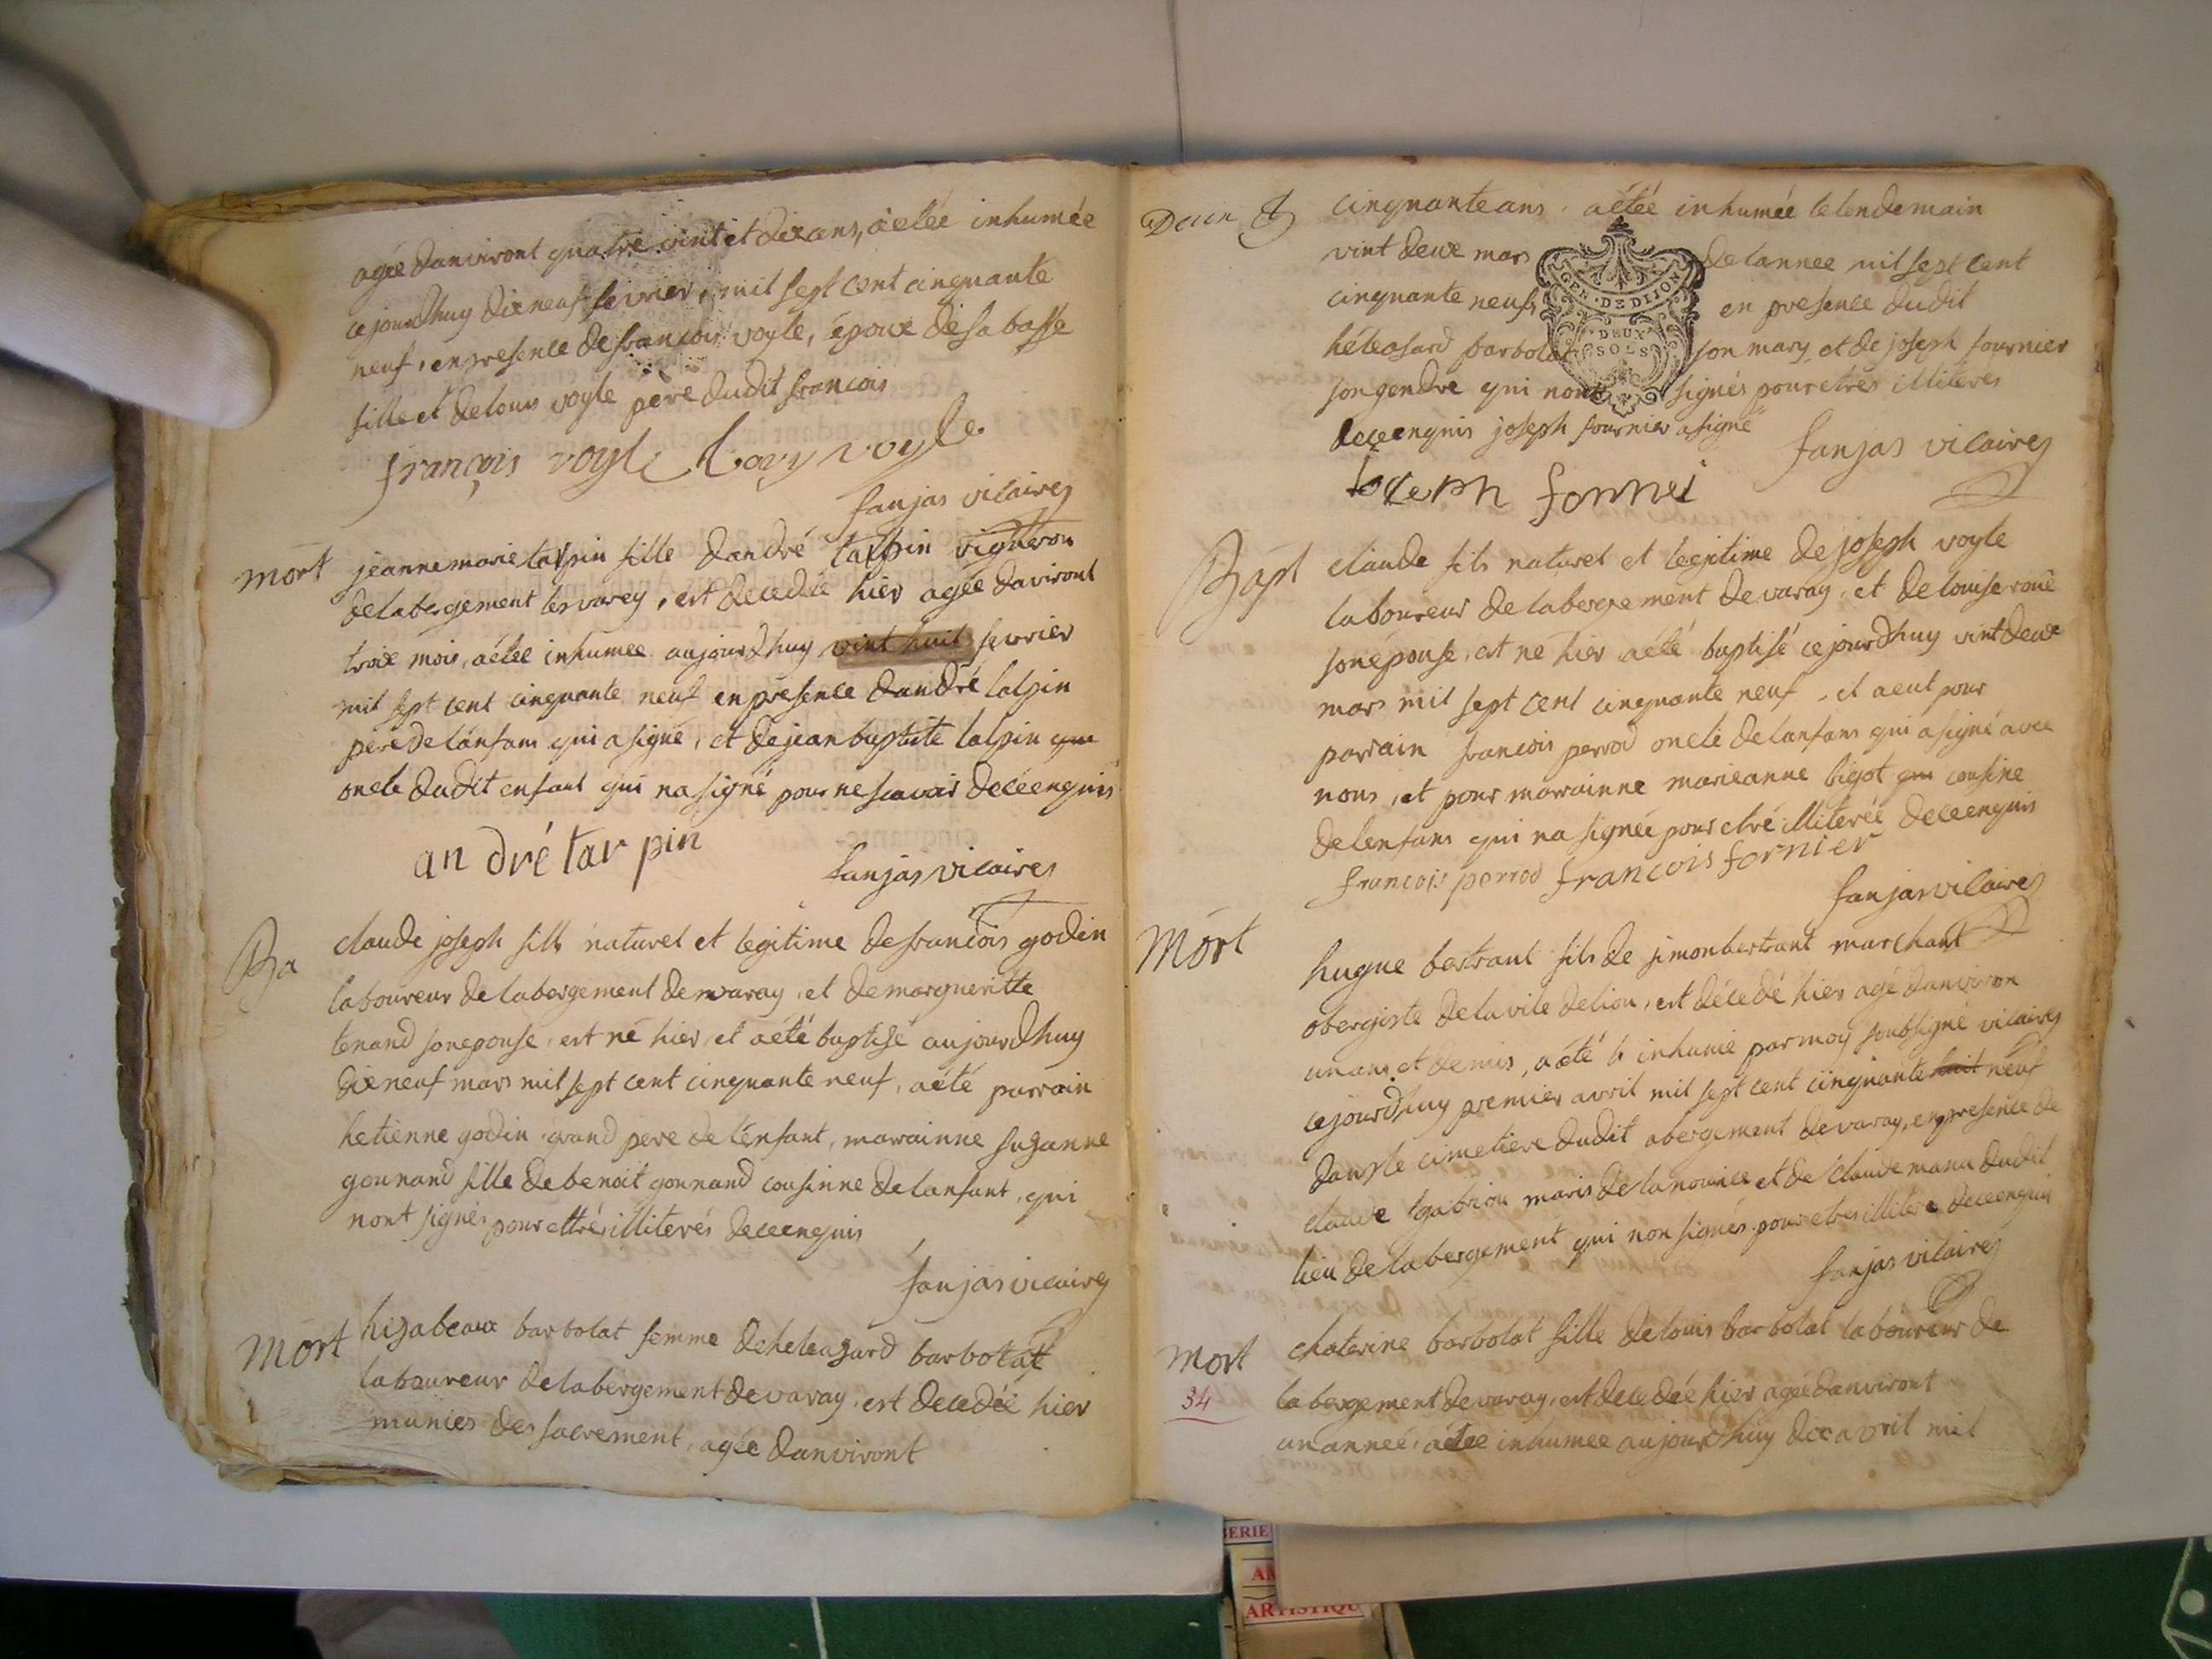 agée danviront quatre vint et dix ans, aetée inhumée
cejourdhuy dix neuf fevrier, mil sept cent cinquante
neuf, en presence de francois voyle, époux de sa basse
fille et de louis voyle pere dudit francois
françois voyle Lovy voyle
fanjas vicaire
mort jeanne marie talpin fille dandré talpin vigneron
de labergement les varey, est decedée hier agée daviront
troix mois, aétée inhumee aujourdhuy vint huit fevrier
mil sept cent cinquante neuf en presence dandré talpin
pere de lánfans qui a signé, et de jean baptiste talpin qui
oncle dudit enfant qui na signé pour ne scavoir deceenquis
an dré tar pin
fanjas vicaire
Ba claude joseph fills naturel et legitime de francois godin
laboureur de labergement de varay, et de margueritte
tenand son epouse, est né hier, et aété baptisé aujourdhuy
dix neuf mars mil sept cent cinquante neuf, aété parrain
hetienne godin grand pere de lénfant, marainne susanne
gonnand fille de benoit gonnand cousinne de lanfant, qui
nont signés pour ettrés illiterés deceenquis
fanjas vicaire
Mort hizabeaux barbolat femme de heleazard barbolat
laboureur de labergement de varay, est decedée hier
munies des sacrement, agée danviront
cinquante ans, aétée inhumée le lendemain
vint deux mars de lannee mil sept cent
cinquante neufs en presence dudit
héleasard barbolat son mary et de joseph fournier
son gendre qui nont signés pour etres illiteres
deceenquis joseph fournier a signé
GEN · DE DIJON
DEUX
SOLS
fanjas vicaire
joseph fornnei
Bapt claude fils naturel et legitime de joseph voyle
laboureur de labergement de varay, et de louise roue
son épouse, est né hier aété baptisé cejourdhuy vint deux
mars mil sept cent cinquante neuf, et a eut pour
parrain francois perrod oncle de lanfans qui a signé avec
nous, et pour marrainne marieanne bigot qui cousine
de lenfans qui na signée pour etré illiterée deceenquis
francois perrod francois fornier
fanjas vicaire
Mort hugue bertrant fils de simon bertrant marchant
obergiste de la vile de lion, est décedé hier agé danviron
un ans et demis, a été inhumé par moy soubsigné vicaire
cejourdhuy premier avril mil sept cent cinquante huit neuf
dans le cimetiere dudit abergement de varay, en presence de
claude gabriou maris de la nourice et de claude manu dudit
lieu de labergement qui non signés pour etres illitere deceenquis
fanjas vicaire
Mort chaterine barbolat fille de louis barbolat laboureur de
34 labergement de varay, est decedée hier agée danviront
un anneé, aétee inhumee aujourdhuy dix avril mil